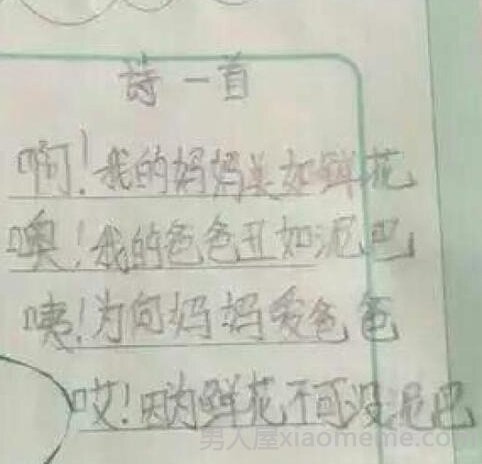 诗一首
啊!我的妈妈美如鲜花
噢!我的爸爸丑如泥巴
咦!为何妈妈爱爸爸
哎!因为鲜花不可没泥巴
男人屋xiaomeme.com